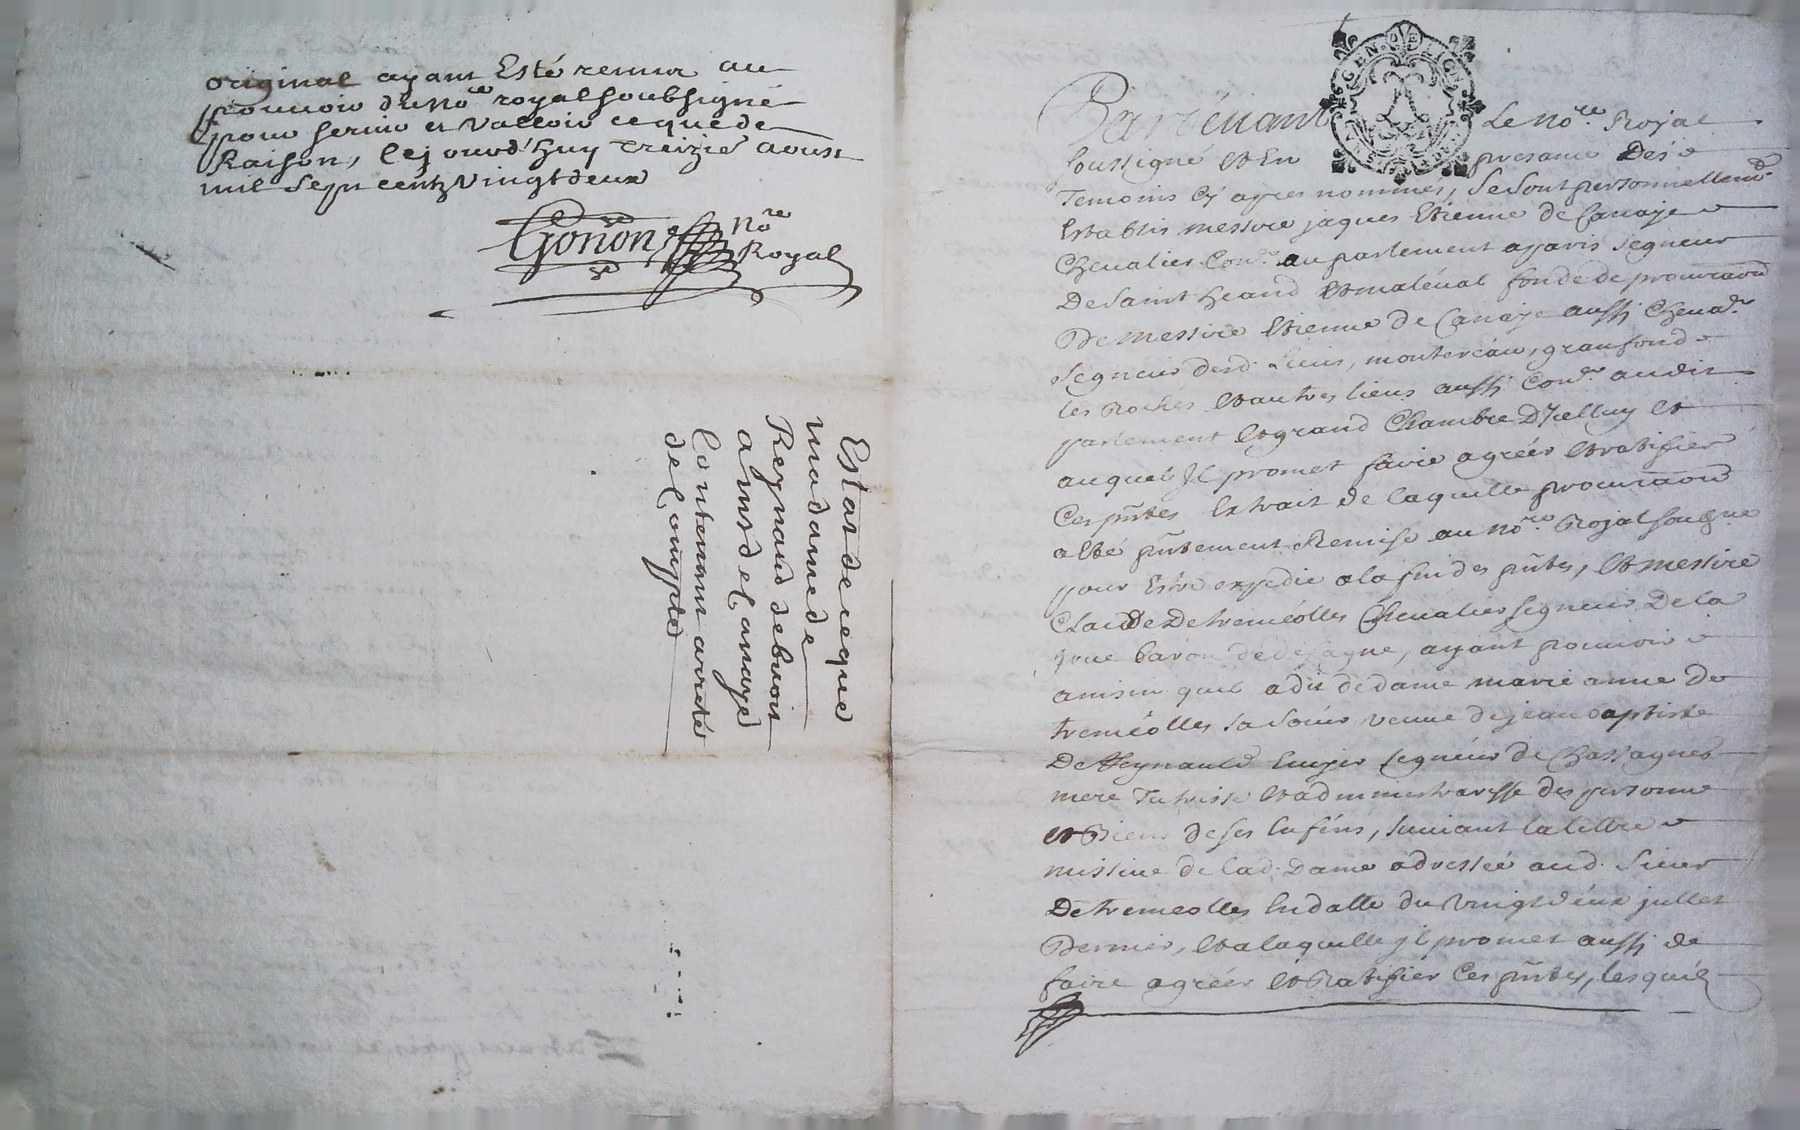 original ayant Esté remis au
pouuoir du No.re royal soubsigné
pour seruir et valloir ce que de
Raison, Cejourd'huy treizié aoust
mil sept centz vingt deux
Gonon No.re
Royal
Estat de ce que
madame de
Reynaud deburoit
a mr de Canaye
Contenant arretés
de Compte
Pardeuant Le No.re Royal
soussigné Et En presance Des
Temoins Cy apres nommés, se sont personnellemt
Establis messire jaques Etienne de Canaye
Cheualier Con.er au parlement a paris segneur
De saint heand Et maleual fondé de procuraon
De messire Etienne de Canaye aussi Cheualr
segneur desd. Lieux, montereau, granfond
les Roches Et autres lieux aussi Con.er audit
parlement Et grand Chambre D'Icelluy Et
auquel Il promet faire agréer Et ratiffier
Ces pntes Extrait de laquelle procuraon
a Eté pntement Remise au No.re Royal sousigné
pour Estre expedié a la fin des pntes, Et messire
Claude De tremeolles Cheualier segneur De la
baron de, ayant pouuoir
ainsin quil a dit de dame marie anne De
tremeolles sa soeur veuue de jean baptiste
De Reynauld Ecuyer segneur de Chassagnes
mere Tutrisse Et administraresse des personne
Et Biens de ses Enfens, suiuant la lettre
missiue de lad. Dame adressée aud. sieur
De tremeolles En datte du vingt deux jullet
Dernier, Et a laquelle Jl promet aussi de
faire agréer Et Ratiffier Ces pntes, lesquels